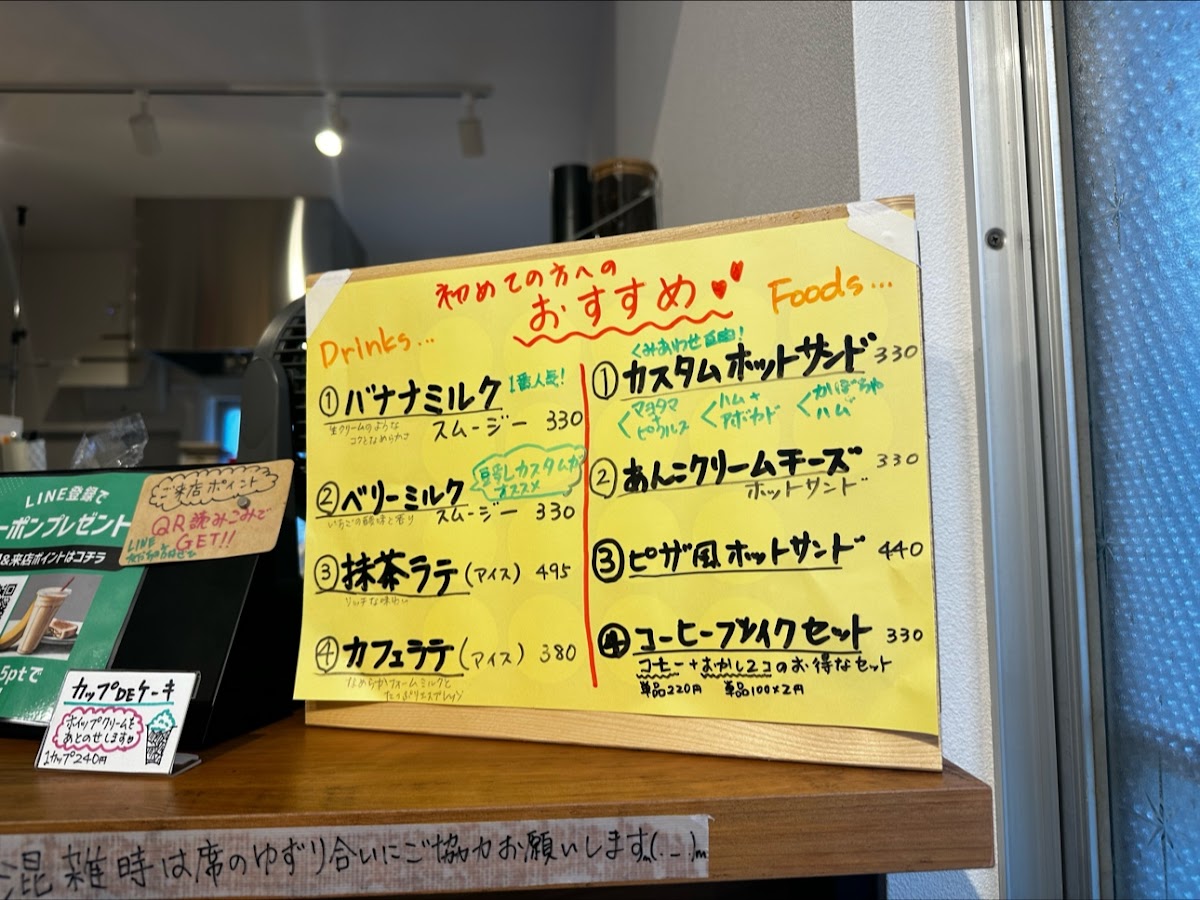 初めての方への
おすすめ
Drinks...
Foods...
①バナナミルク
1番人気!
生クリームのような
コクとなめらかさ
スムージー 330
②ベリーミルク
豆乳カスタムが
オススメ
いちごの酸味と香り
スムージー 330
③抹茶ラテ(アイス) 495
リッチな味わい
④カフェラテ(アイス) 380
なめらかフォームミルクと
たっぷりエスプレッソ
くみあわせ自由!
①カスタムホットサンド 330
マヨタマ
+
ピクルス
ハム+
アボカド
かぼちゃ
ハム
②あんこクリームチーズ 330
ホットサンド
③ピザ風ホットサンド 440
④コーヒーブレイクセット 330
コーヒー+おかし2コのお得なセット
単品220円 単品100×2円
LINE登録で
ーポンプレゼント
&来店ポイントはコチラ
5ptで
ご来店ポイント
QR読みこみで
GET!!
LINE
カップDEケーキ
ホイップクリームを
あとのせします
1カップ240円
混雑時は席のゆずり合いにご協力お願いします m(._.)m